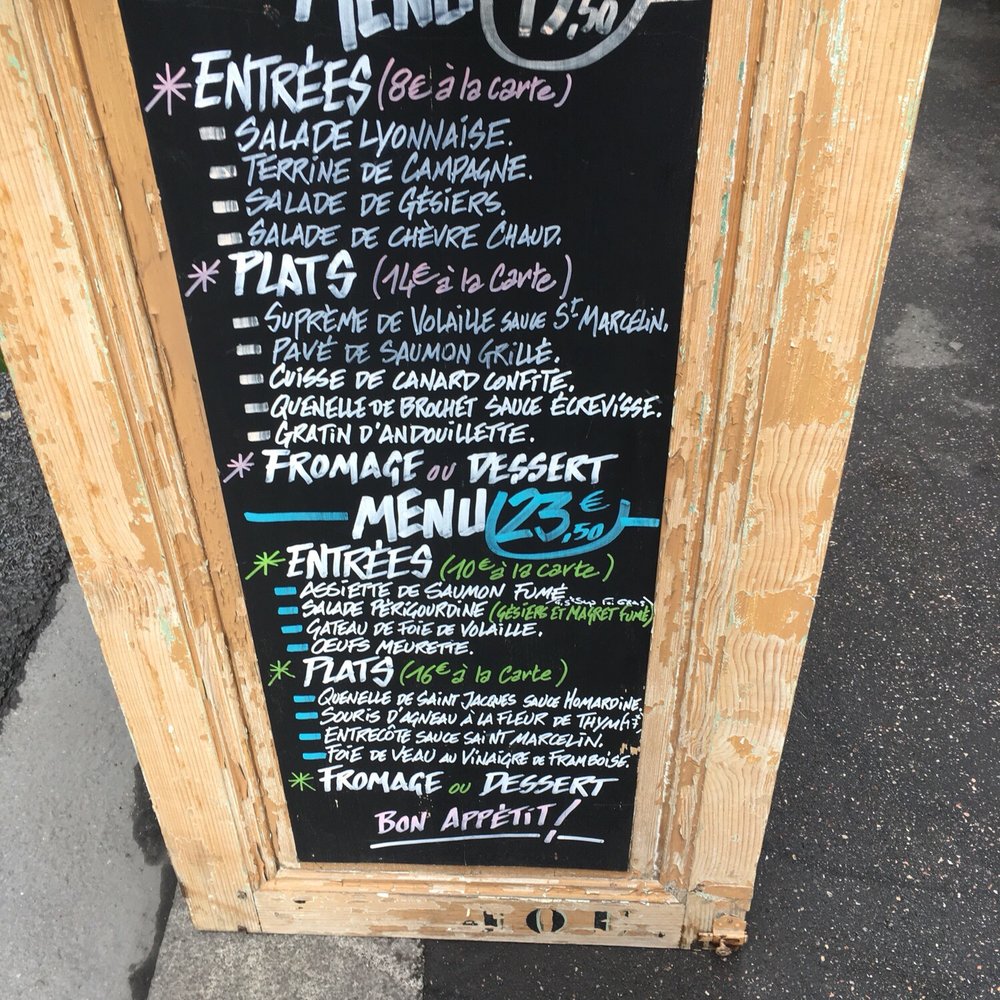 MENU 19,50
* ENTRÉES (8€ à la carte)
- SALADE LYONNAISE.
- TERRINE DE CAMPAGNE.
- SALADE DE GÉSIERS.
- SALADE DE CHÈVRE CHAUD.
* PLATS (14€ à la carte)
- SUPRÈME DE VOLAILLE SAUCE St MARCELIN.
- PAVÉ DE SAUMON GRILLÉ.
- CUISSE DE CANARD CONFITE.
- QUENELLE DE BROCHET SAUCE ÉCREVISSE.
- GRATIN D'ANDOUILLETTE.
* FROMAGE OU DESSERT
MENU 23,50€
* ENTRÉES (10€ à la carte)
- ASSIETTE DE SAUMON FUMÉ
- SALADE PÉRIGOURDINE (GÉSIERS ET MAGRET FUMÉ)
- GATEAU DE FOIE DE VOLAILLE.
- OEUFS MEURETTE.
* PLATS (16€ à la carte)
- QUENELLE DE SAINT JACQUES SAUCE HOMARDINE.
- SOURIS D'AGNEAU À LA FLEUR DE THYM
- ENTRECÔTE SAUCE SAINT MARCELIN.
- FOIE DE VEAU AU VINAIGRE DE FRAMBOISE.
* FROMAGE OU DESSERT
BON APPÉTIT!